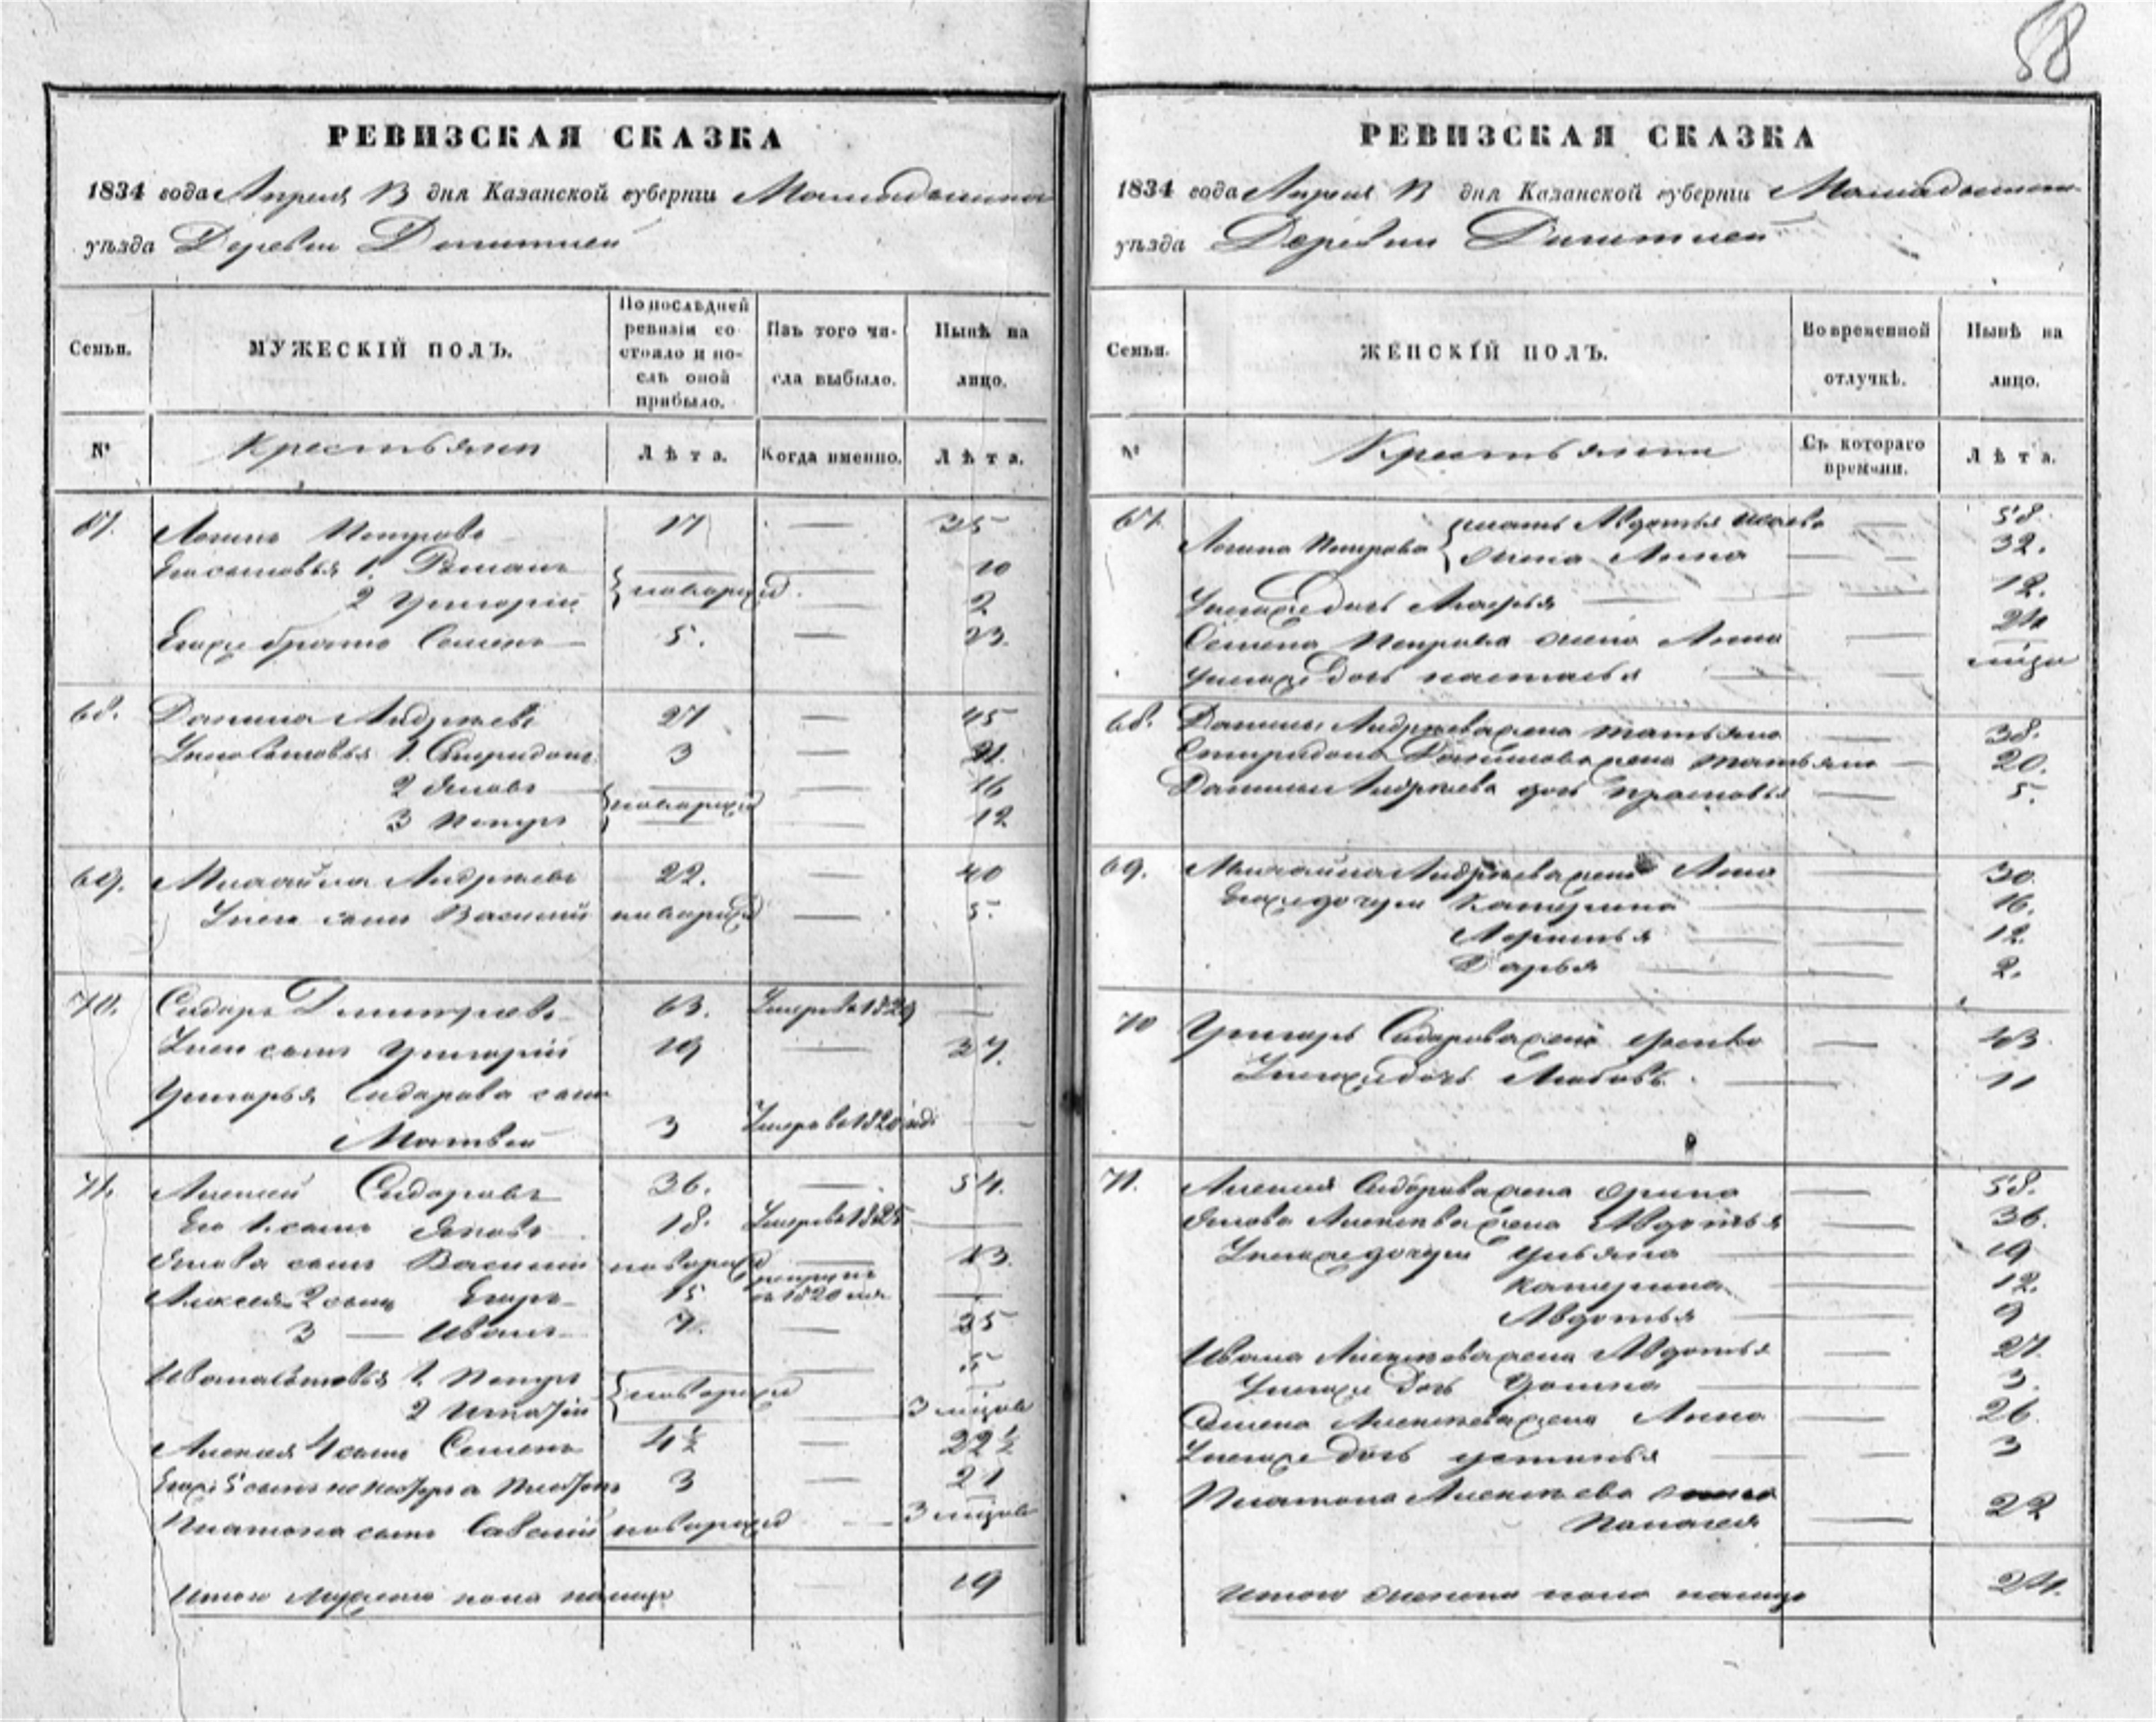 58
РЕВИЗСКАЯ СКАЗКА
1834 года Апреля дня Казанской губернiи
уѣзда Деревни
Семьи.
МУЖЕСКIЙ ПОЛЪ.
По послѣдней ревизiи состояло и послѣ оной прибыло.
Изъ того числа выбыло.
Нынѣ на лицо.
№
Крестьяне
Лѣта.
Когда именно.
Лѣта.
67. Логинъ Петровъ 17 — 35
Его сыновья 1. Романъ — 10
2 Григорiй новорожд. — 2
Егоже братъ Семенъ 5. — 23.
68. Данила Андреевъ 27 — 45
У него сыновья 1. Спиридонъ 3 — 21.
2 Яковъ — 16
3 Петръ новорожд — 12
69. Михайла Андреевъ 22. — 40
У него сынъ Василий новорожд — 5.
70. Сидаръ Дмитриевъ 63. Умеръ въ 1829 —
У него сынъ Григорiй 19 — 37.
Григорья Сидарова сынъ
Матвей 3 Умеръ въ 1820 годе —
71. Алексей Сидаровъ 36. — 54.
Его 1. сынъ Яковъ 18. Умеръ въ 1825 —
Якова сынъ Василий новорожд — 13.
Алексея 2 сынъ Егоръ 15 рекруты въ 1820 —
3 — Иванъ 7. — 25
Ивана сыновья 1. Петръ — 5
2 новорожд — 3 месяцов
Алексея 4 сынъ Семенъ 4½ — 22½
Егоже 5 сынъ Платонъ 3 — 21
Платона сынъ Савелий новорожд — 3 месяцов
Итого мужеска пола налицо — 19
РЕВИЗСКАЯ СКАЗКА
1834 года Апреля дня Казанской губернiи
уѣзда Деревни
Семьи.
ЖЕНСКIЙ ПОЛЪ.
Во временной отлучкѣ.
Нынѣ на лицо.
№
Крестьяне
Съ котораго времени.
Лѣта.
67. мать Авдотья — 58.
Логина Петрова жена Анна — 32.
У негоже дочь Марфья — 12.
Семена Петрова жена Анна — 24
У негоже дочь Настасья —
68. Данилы Андреева жена Татьяна — 38.
Спиридона Данилова жена Татьяна — 20.
Данилы Андреева дочь Прасковья — 5.
69. Михайла Андреева жена Анна — 30.
Егоже дочери Катерина — 16.
— 12.
Дарья — 2.
70 Григорья Сидарова жена — 43
У негоже дочь Любовь. — 11
71. Алексея Сидорова жена Ирина — 58.
Якова Алексеева жена Авдотья — 36.
У негоже дочери Ульяна — 19
Катерина — 12.
Авдотья — 9
Ивана Алексеева жена Авдотья — 27.
У негоже дочь — 3.
Семена Алексеева жена Анна — 26.
У негоже дочь Устинья — 3
Платона Алексеева жена
Палагея — 22
Итого женска пола налицо 24.